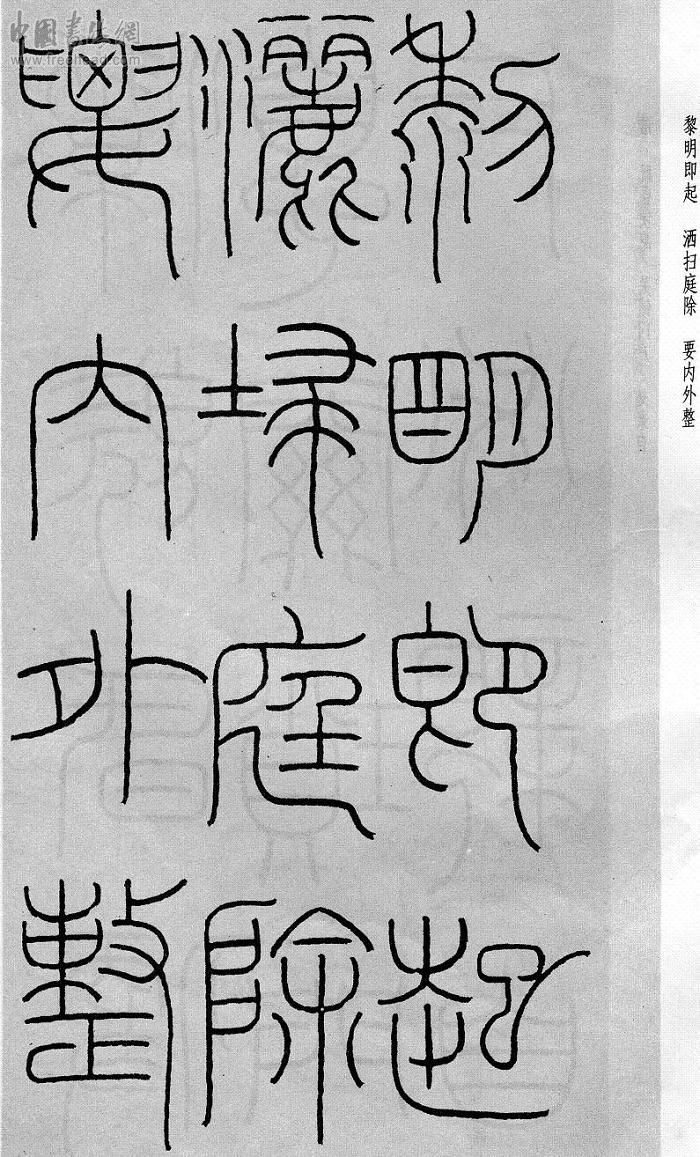 黎明即起
灑埽庭除
要内外整
黎明即起 洒扫庭除 要内外整
中国书法網
www.freehead.com